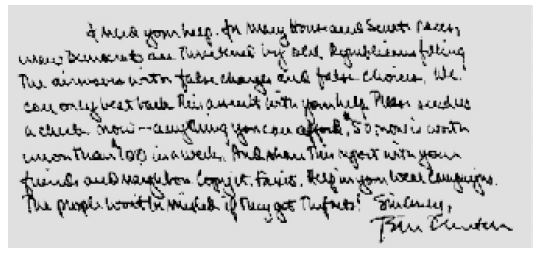 I need your help. In many House and Senate races,
Democrats are threatened by Republicans filling
the airwaves with false charges and false choices. We
can only beat back this assault with your help. Please send us
a check now -- anything you can afford. $50 now is worth
more than $100 in a week. And share this report with your
friends and neighbors. Copy it. Fax it. Help in your local campaigns.
The people won't be misled if they get the facts! Sincerely,
Bill Clinton